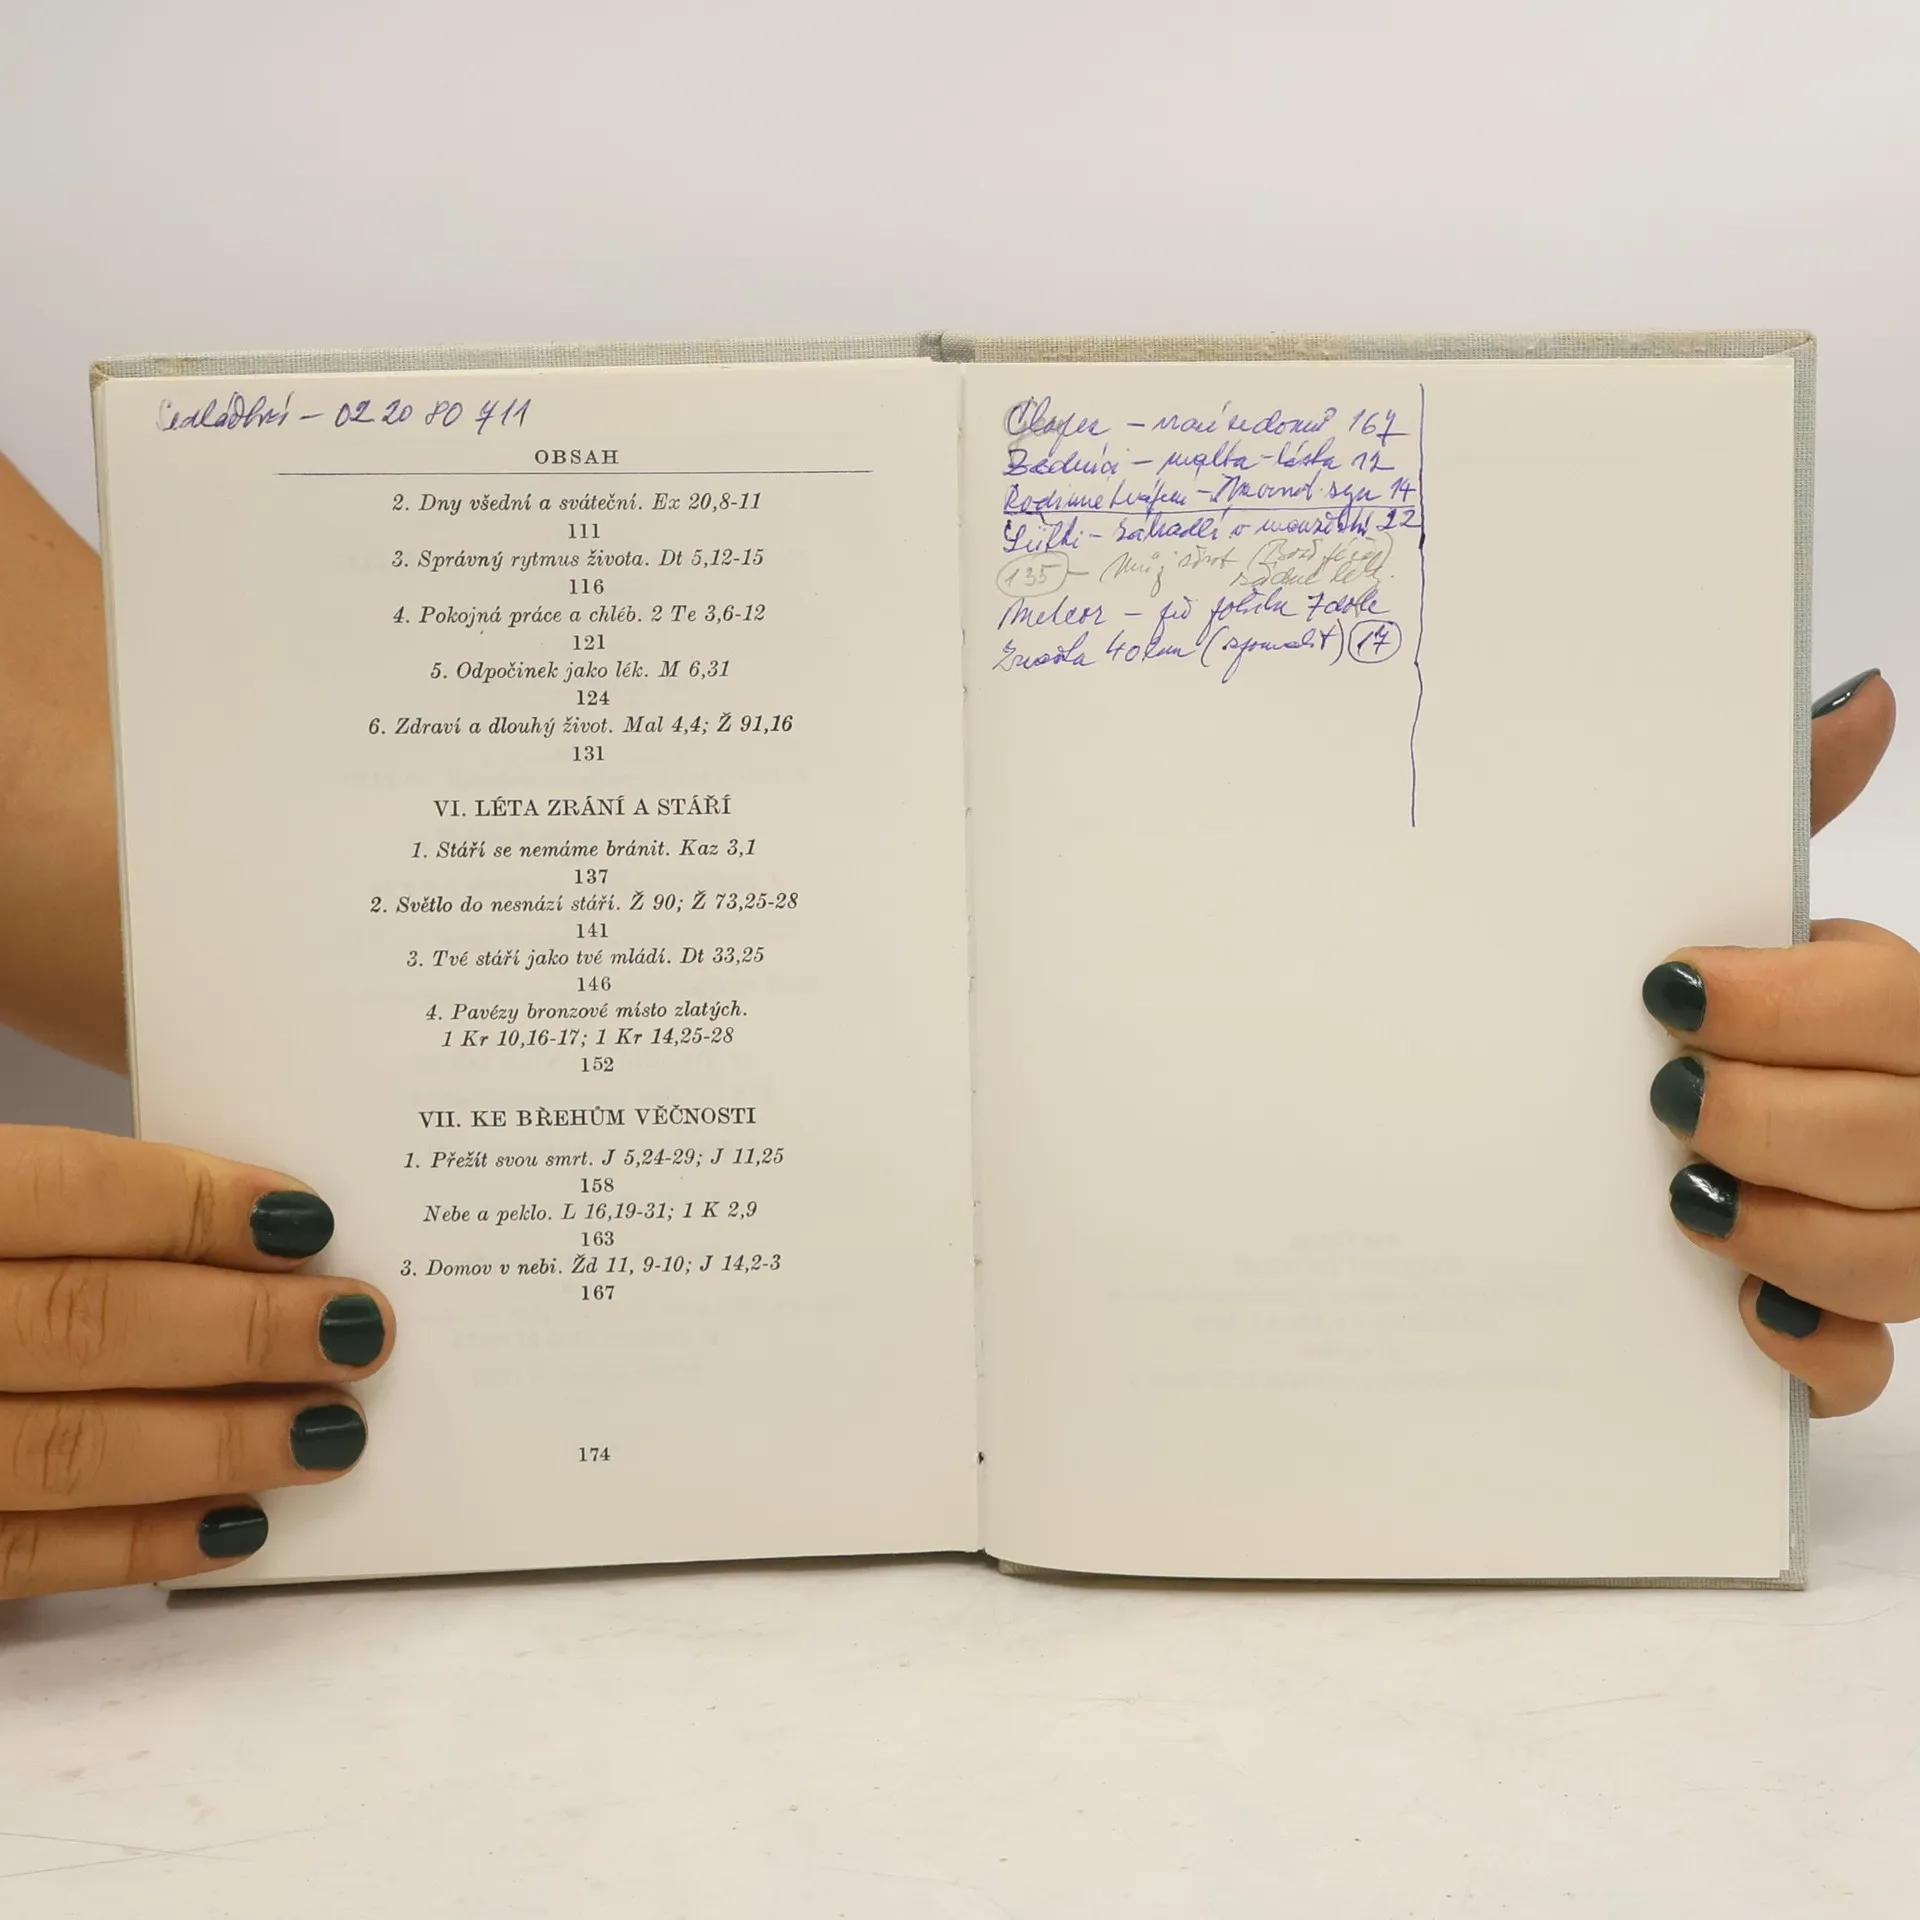 – 02 20 80 711
OBSAH
2. Dny všední a sváteční. Ex 20,8-11
111
3. Správný rytmus života. Dt 5,12-15
116
4. Pokojná práce a chléb. 2 Te 3,6-12
121
5. Odpočinek jako lék. M 6,31
124
6. Zdraví a dlouhý život. Mal 4,4; Ž 91,16
131
VI. LÉTA ZRÁNÍ A STÁŘÍ
1. Stáří se nemáme bránit. Kaz 3,1
137
2. Světlo do nesnází stáří. Ž 90; Ž 73,25-28
141
3. Tvé stáří jako tvé mládí. Dt 33,25
146
4. Pavézy bronzové místo zlatých.
1 Kr 10,16-17; 1 Kr 14,25-28
152
VII. KE BŘEHŮM VĚČNOSTI
1. Přežít svou smrt. J 5,24-29; J 11,25
158
Nebe a peklo. L 16,19-31; 1 K 2,9
163
3. Domov v nebi. Žd 11, 9-10; J 14,2-3
167
174
Chlapec – 167
Zedníci – malta - láska 12
syn 14
– zábradlí v 22
135 – Můj život
Meteor – 7 dole
40 km 17